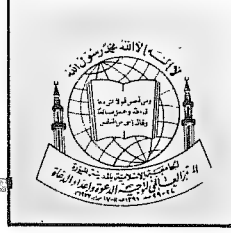 لا إله إلا الله محمد رسول الله
ومن أحسن قولا ممن دعا
إلى الله وعمل صالحا
وقال إنني من المسلمين
الجامعة الإسلامية بالمدينة المنورة
المؤتمر العالمي لتوجيه الدعوة وإعداد الدعاة